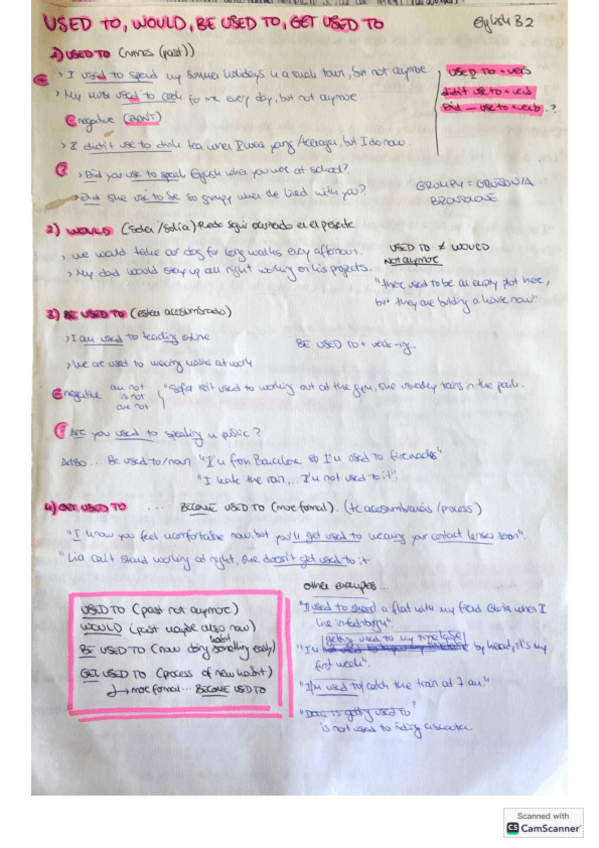 USED TO, WOULD, BE USED TO, GET USED TO
English B2
1) USED TO (past)
> I used to spend my summer holidays in a small town, but not anymore.
> My mum used to cook for me every day, but not anymore
USED TO + verb
didn't use to + verb
Did — use to + verb..?
negative (DIDN'T)
> I didn't use to drink tea when I was young/teenager, but I do now.
> Did you use to speak English when you were at school?
> Did she use to be so grumpy when she lived with you?
GRUMPY = GRUÑON/A
2) WOULD (soler/solía) Puede seguir ocurriendo en el presente
> We would take our dog for long walks every afternoon.
> My dad would stay up all night working on his projects.
USED TO ≠ WOULD
Not anymore
"There used to be an empty plot here,
but they are building a house now"
3) BE USED TO (estar acostumbrado)
> I am used to teaching online
BE USED TO + verb -ing
> We are used to wearing masks at work
negative
am not
is not
are not
"Sofia isn't used to working out at the gym, she usually trains in the park.
? Are you used to speaking in public?
Also... Be used to/noun "I'm from Barcelona so I'm used to firecrackers"
"I hate the rain,... I'm not used to it".
4) GET USED TO ... BECOME USED TO (more formal). (proceso)
"I know you feel uncomfortable now, but you'll get used to wearing your contact lenses soon".
"Lia can't stand working at night, she doesn't get used to it
USED TO (past not anymore)
WOULD (past maybe also now)
habit
BE USED TO (now doing something easily)
GET USED TO (process of new habit)
→ more formal... BECOME USED TO
other examples...
"I used to share a flat with my friend when I
live in Edinburgh".
getting used to my timetable
"I'm by heart, it's my
first week".
"I'm used to catch the train at 7 am."
"Dan is getting used to
is not used to riding a scooter
Scanned with
CS CamScanner